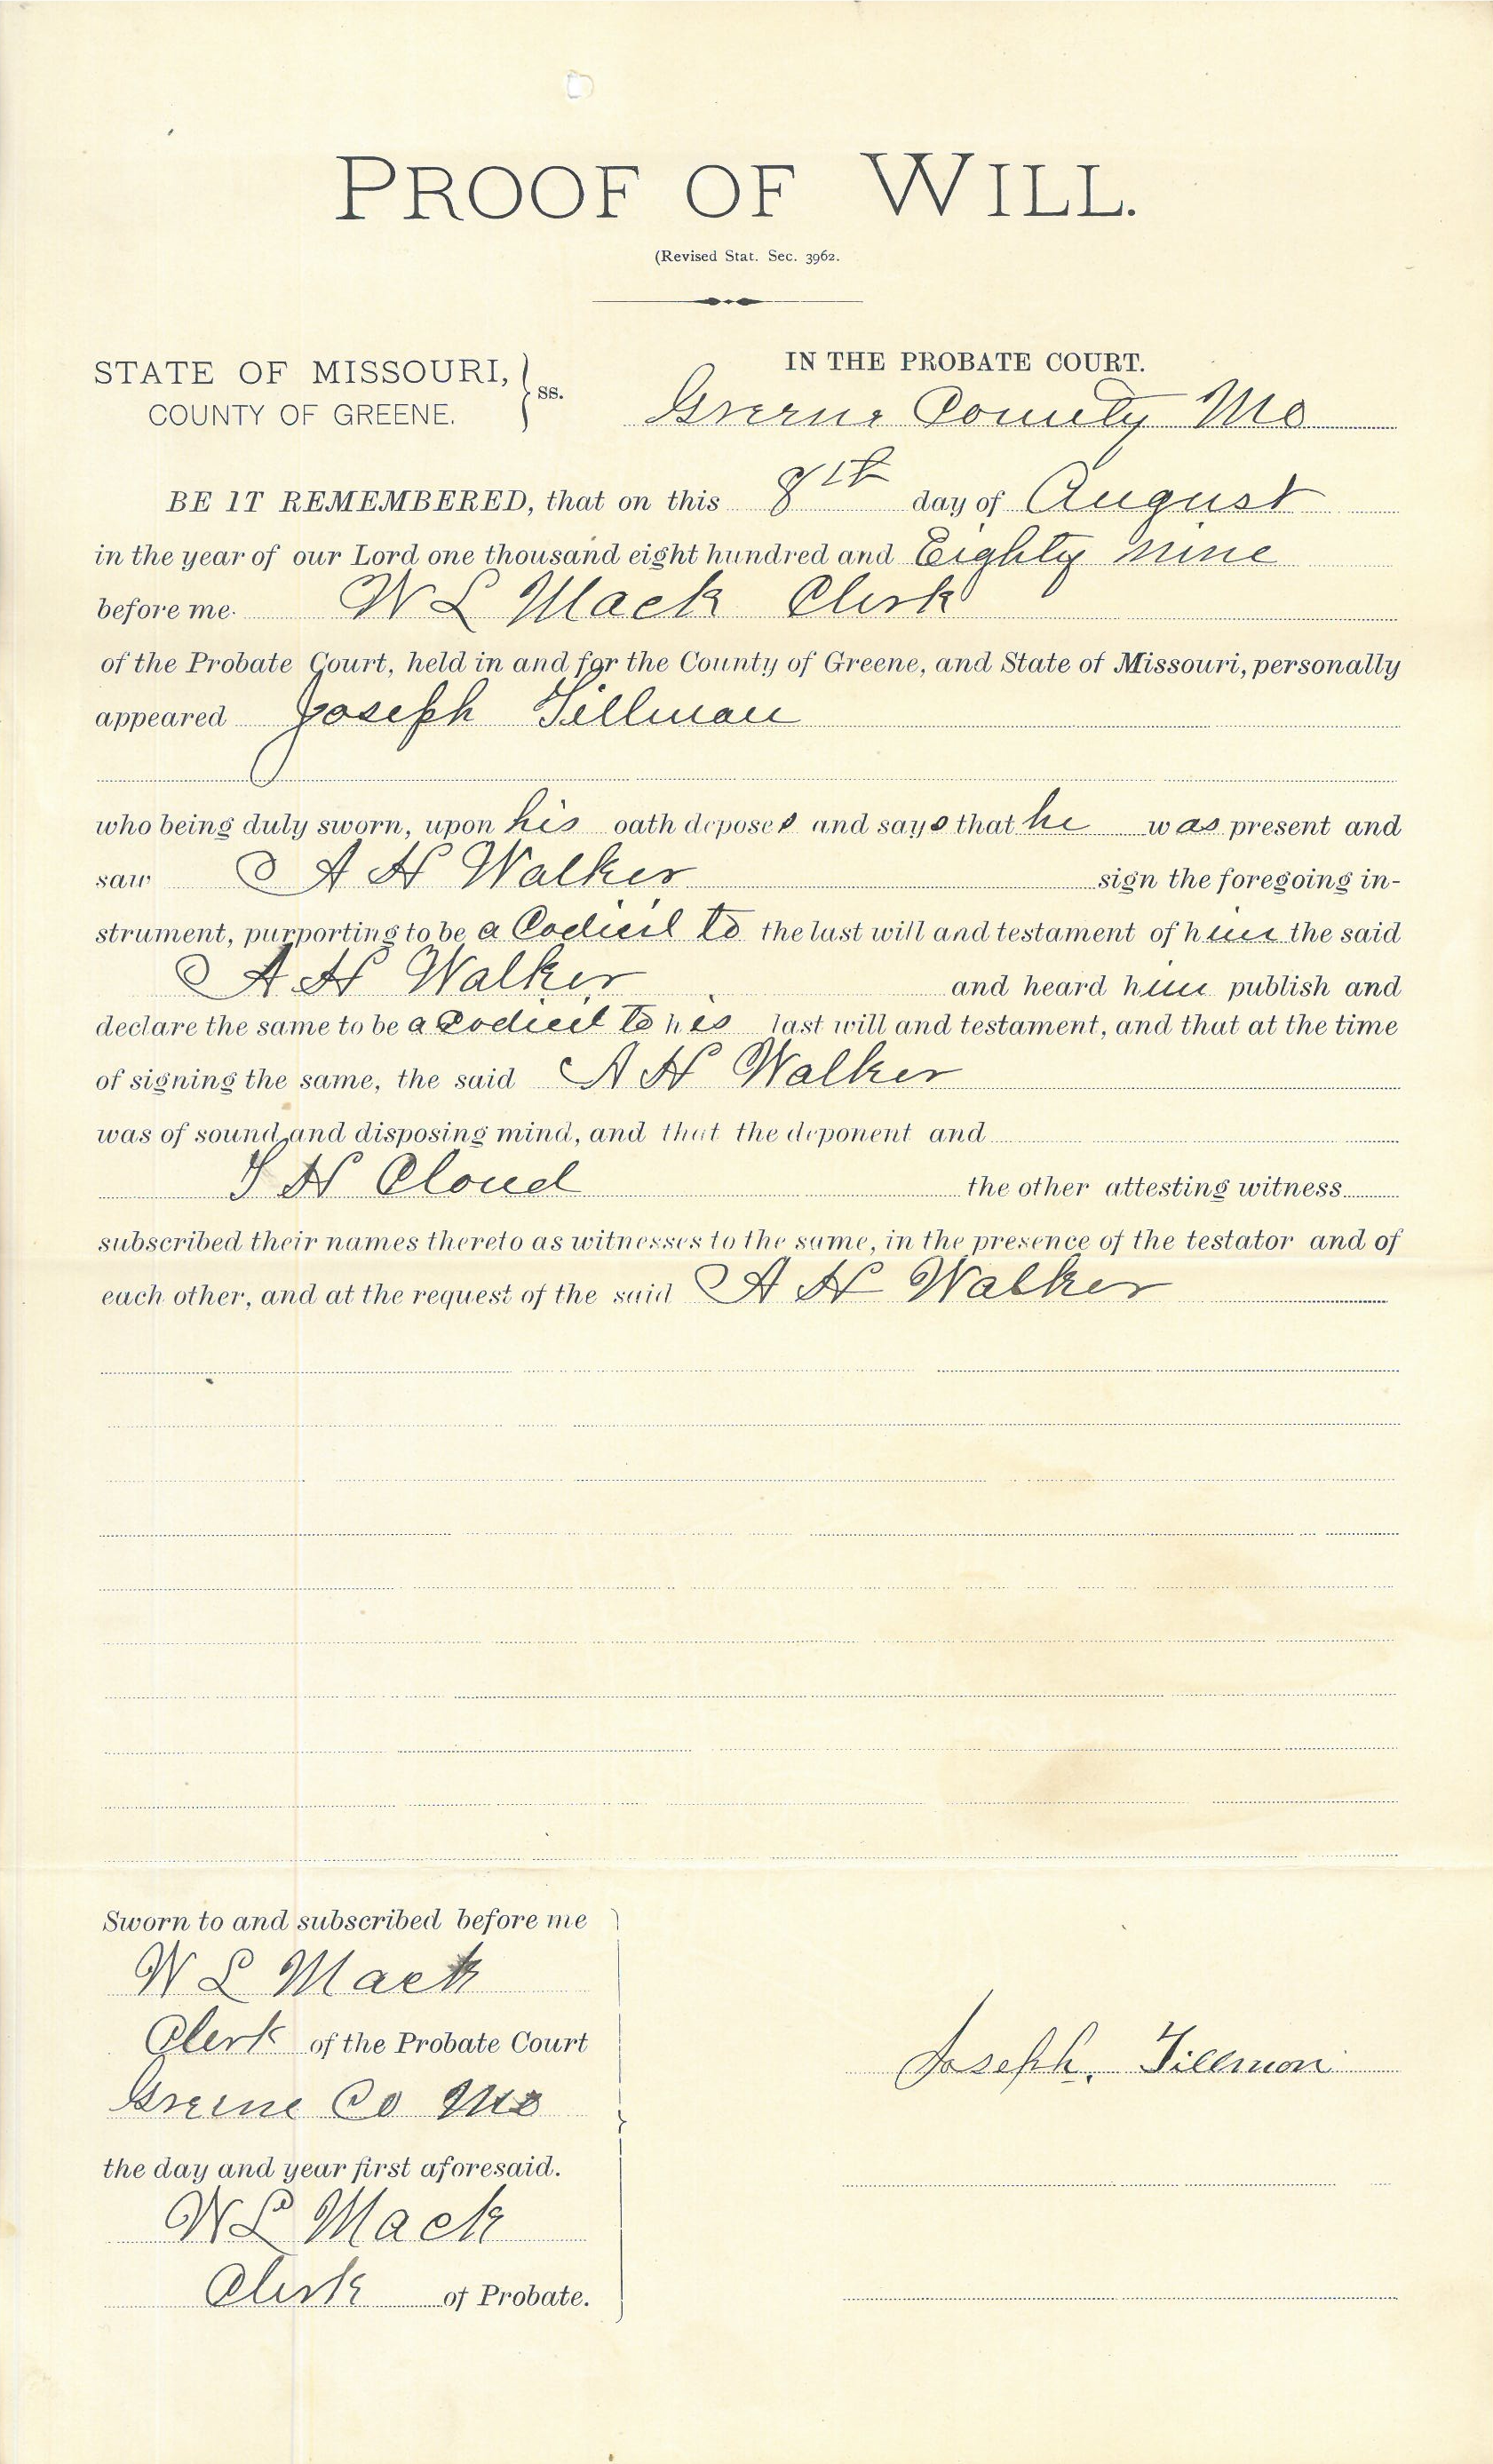 PROOF OF WILL.
(Revised Stat. Sec. 3962.
STATE OF MISSOURI, } ss.
COUNTY OF GREENE.
IN THE PROBATE COURT.
Greene County Mo
BE IT REMEMBERED, that on this 8th day of August
in the year of our Lord one thousand eight hundred and Eighty nine
before me W L Mack Clerk
of the Probate Court, held in and for the County of Greene, and State of Missouri, personally
appeared Joseph Tillman
who being duly sworn, upon his oath deposes and says that he was present and
saw A H Walker sign the foregoing in-
strument, purporting to be a Codicil to the last will and testament of him the said
A H Walker and heard him publish and
declare the same to be a Codicil to his last will and testament, and that at the time
of signing the same, the said A H Walker
was of sound and disposing mind, and that the deponent and
S H Cloud the other attesting witness
subscribed their names thereto as witnesses to the same, in the presence of the testator and of
each other, and at the request of the said A H Walker
Sworn to and subscribed before me
W L Mack
Clerk of the Probate Court
Greene Co Mo
the day and year first aforesaid.
W L Mack
Clerk of Probate.
Joseph. Tillmon